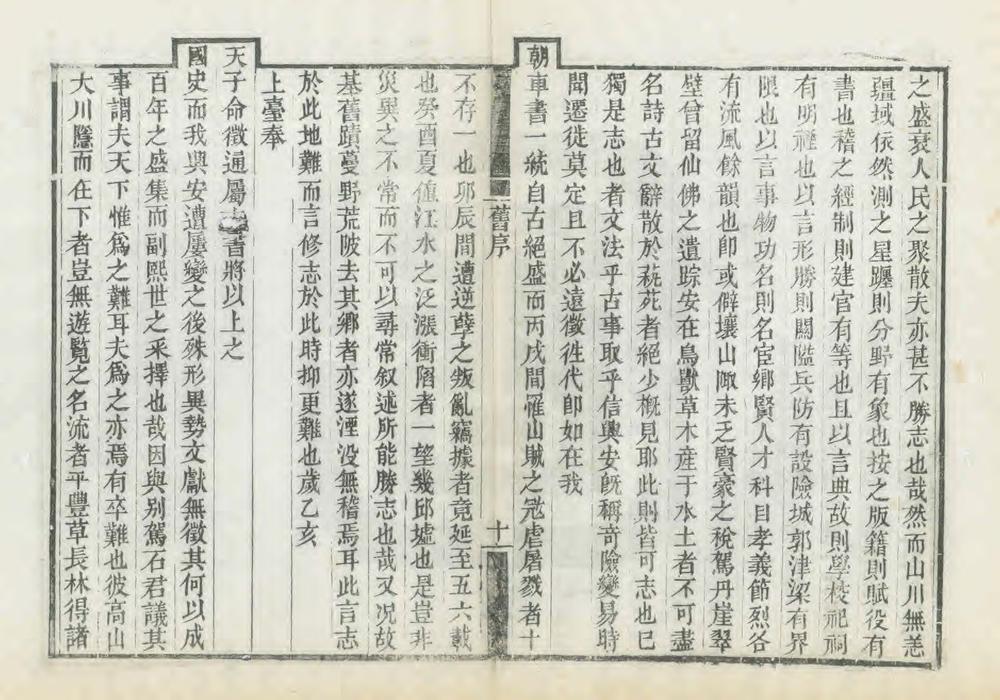 之盛衰人民之聚散夫亦甚不勝志也哉然而山川無恙
疆域依然測之星躔則分野有象也按之版籍則賦役有
書也稽之經制則建官有等也且以言典故則學校祀祠
有明禋也以言形勝則關隘兵防有設險城郭津梁有界
限也以言事物功名則名宦鄉賢人才科目孝義節烈各
有流風餘韻也卽或僻壤山陬未乏賢豪之稅駕丹崖翠
壁曾留仙佛之遺踪安在鳥獸草木産于水土者不可盡
名詩古文辭散於蓺苑者絕少槪見耶此則皆可志也巳
獨是志也者文法乎古事取乎信興安旣稱奇險變易時
聞遷徙莫定且不必遠徵徃代卽如在我
朝車書一統自古絕盛而丙戌間罹山賊之冦虐屠戮者十
舊序
十
不存一也卯辰間遭逆孽之叛亂竊據者竟延至五六載
也癸酉夏值江水之泛漲衝陷者一望幾邱墟也是豈非
災異之不常而不可以尋常叙述所能勝志也哉又况故
基舊蹟蔓野荒陂去其鄉者亦遂湮没無稽焉耳此言志
於此地難而言修志於此時抑更難也歲乙亥
上臺奉
天子命徵通屬書將以上之
國史而我興安遭屢變之後殊形異勢文獻無徵其何以成
百年之盛集而副熙世之采擇也哉因與别駕石君議其
事謂夫天下惟爲之難耳夫爲之亦焉有卒難也彼高山
大川隱而在下者豈無遊覧之名流者乎豐草長林得諸